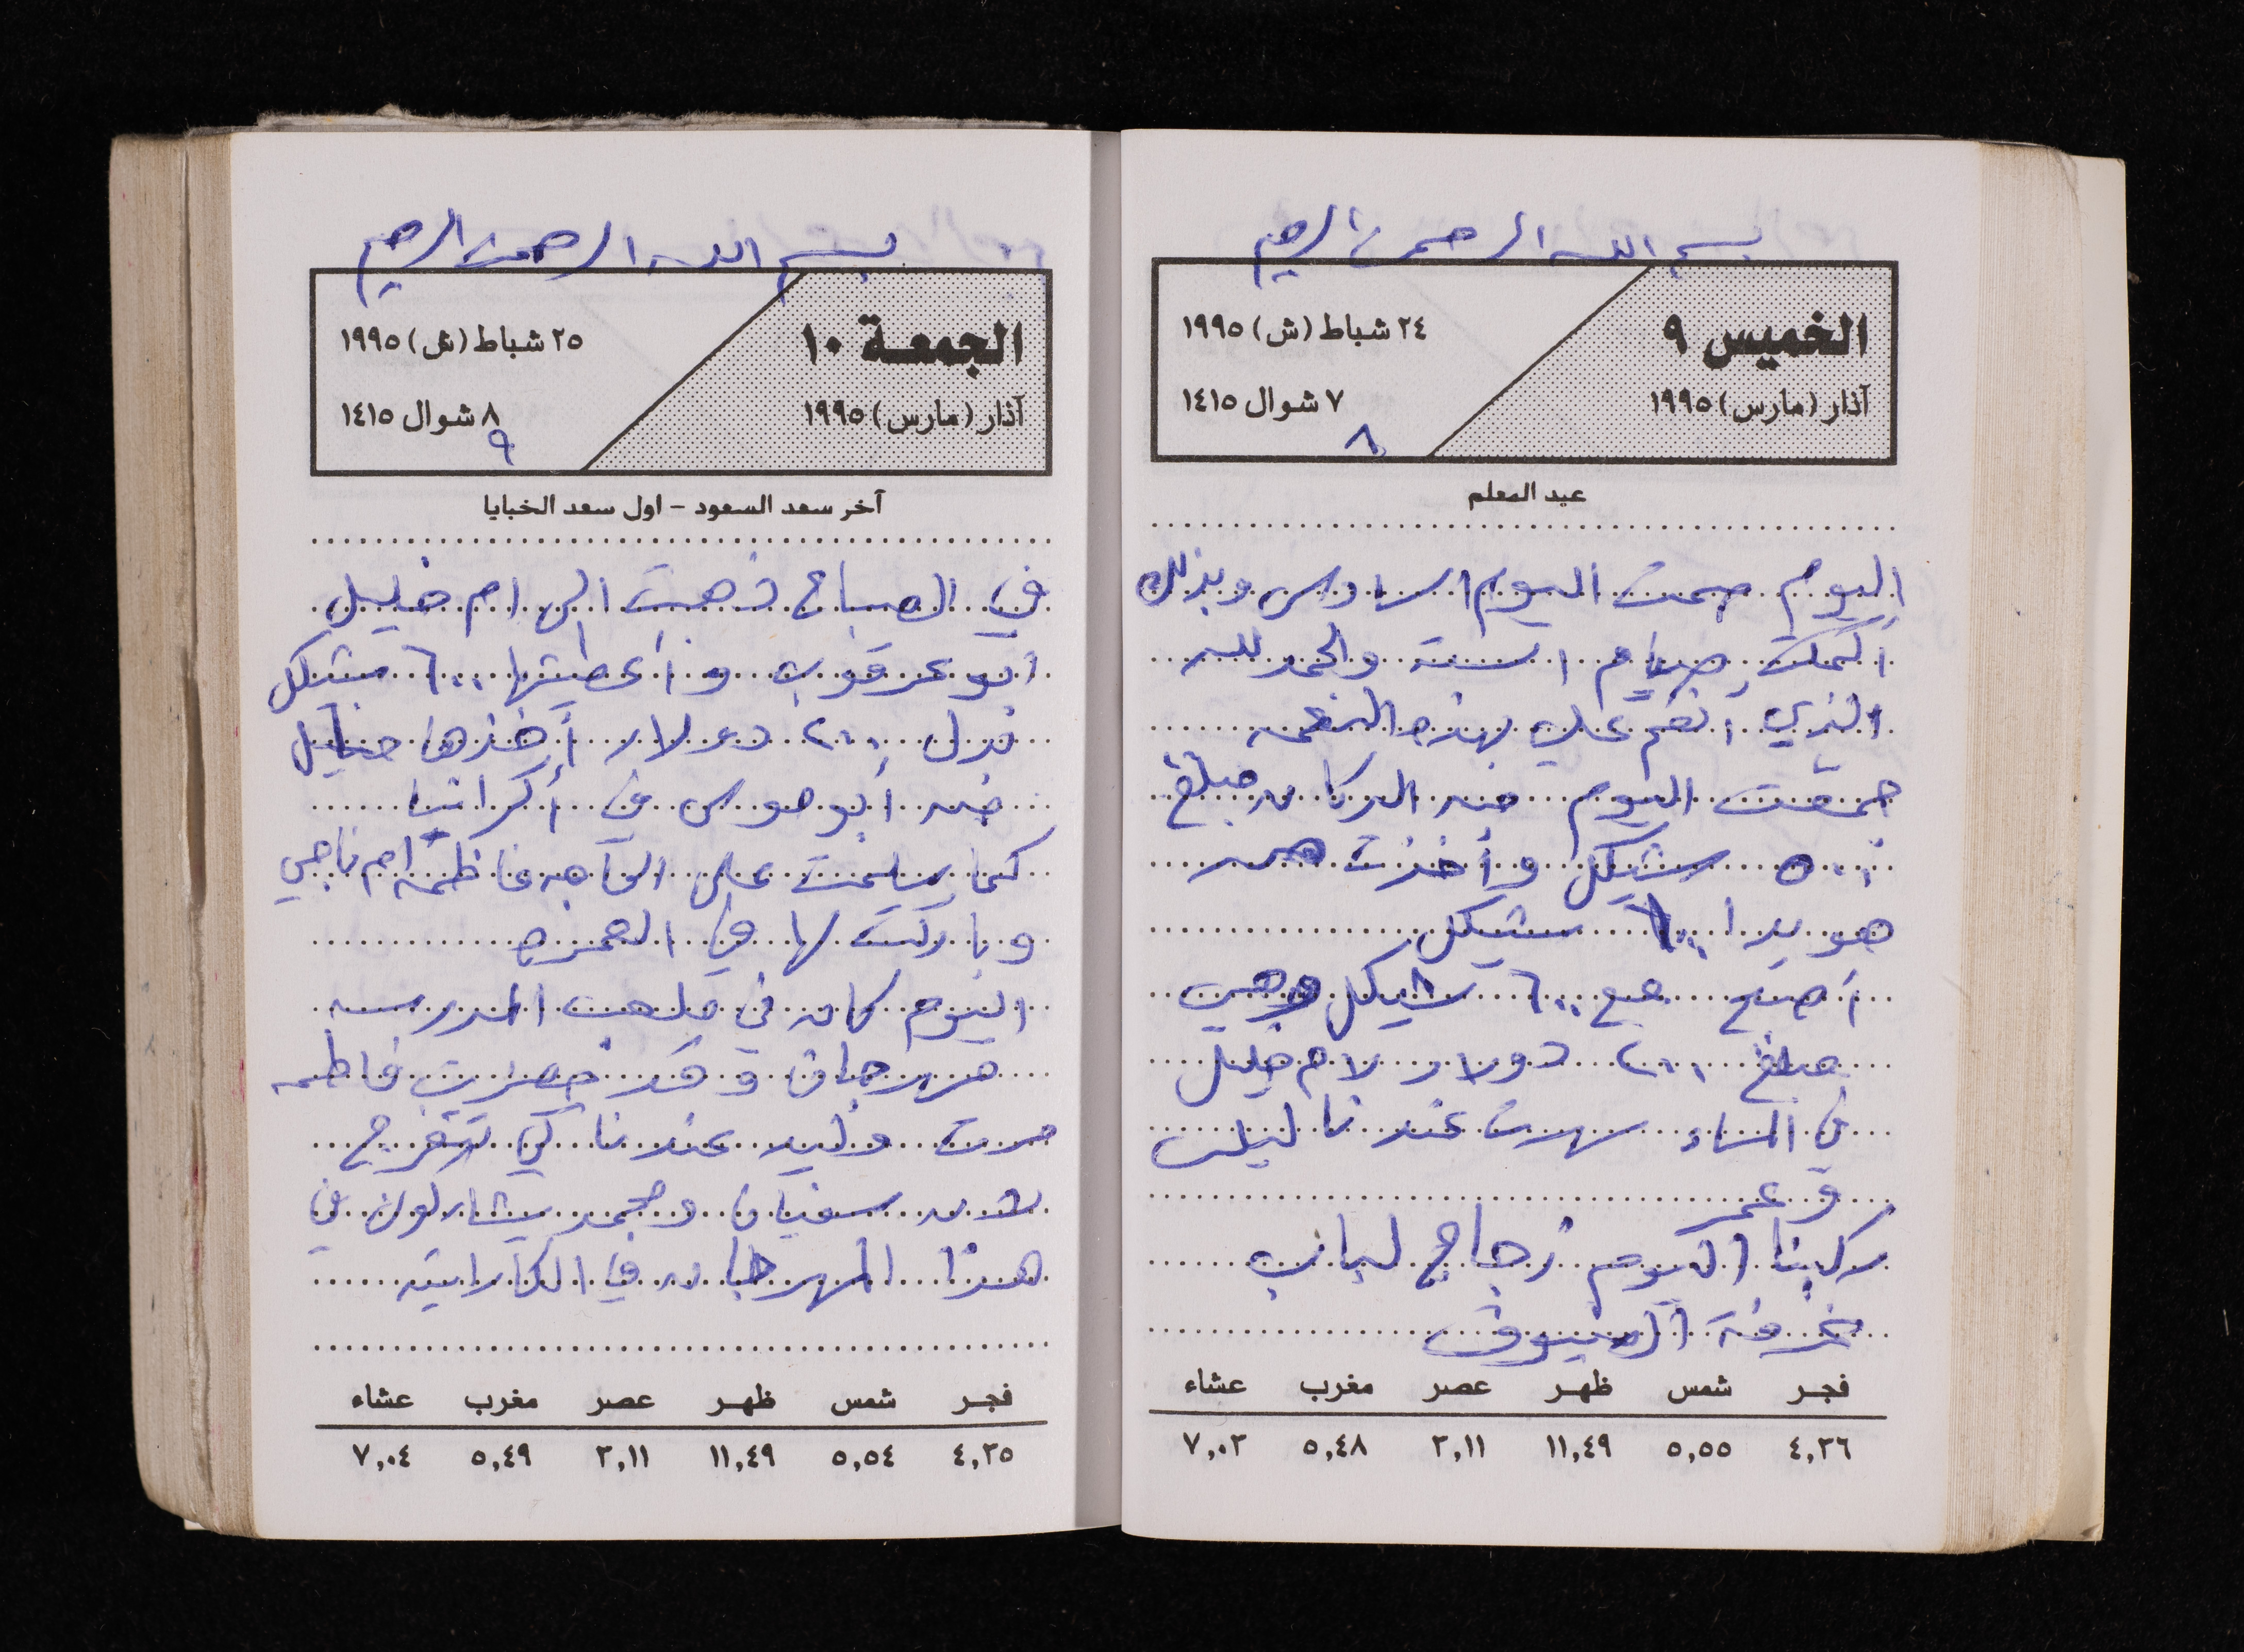 بسم الله الرحمن الرحيم
الخميس ٩
٢٤ شباط (ش) ١٩٩٥
آذار (مارس) ١٩٩٥
٧ شوال ١٤١٥
٨
عيد المعلم
اليوم صمت اليوم السادس وبذلك
أكملت صيام الستة والحمد لله
الذي أنعم علي بهذه النعمه
جمعت اليوم من الدكان مبلغ
٥٠٠ شيكل وأخذت من
هويدا ١٠٠ شيكل
أصبح مع ٦٠٠ شيكل وهي
مبلغ ٢٠٠ دولار لام خليل
في المساء سهرت عندنا ليلى
و عمر
ركبنا اليوم زجاج لباب
غرفة الضيوف
فجر شمس ظهر عصر مغرب عشاء
٤,٢٦ ٥,٥٥ ١١,٤٩ ٣,١١ ٥,٤٨ ٧,٠٣
بسم الله الرحمن الرحيم
الجمعة ١٠
٢٥ شباط (ش) ١٩٩٥
آذار (مارس) ١٩٩٥
٨ شوال ١٤١٥
٩
آخر سعد السعود - اول سعد الخبايا
في الصباح ذهبت الى ام خليل
ابو عرقوب و أعطيتها ٦٠٠ شيكل
بدل ٢٠٠ دولار أخذها خليل
من أبو موسى في أكرانيا
كما سلمت على الحاجه فاطمه ام ناجي
وباركت لها في العمره
اليوم كان في ملعب المدرسه
مهرجان و قد حضرت فاطمه
مرت وليد عندنا كي تتفرج
لان سفيان ومحمد يشاركون في
هذا المهرجان في الكاراتيه
فجر شمس ظهر عصر مغرب عشاء
٤,٢٥ ٥,٥٤ ١١,٤٩ ٣,١١ ٥,٤٩ ٧,٠٤